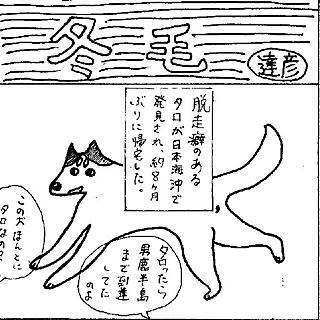 冬毛
達彦
脱走癖のある
タロが日本海沖で
発見され、約8ヶ月
ぶりに帰宅した。
タロったら
男鹿半島
まで到達
してた
のよ
この犬ほんとに
タロなの?